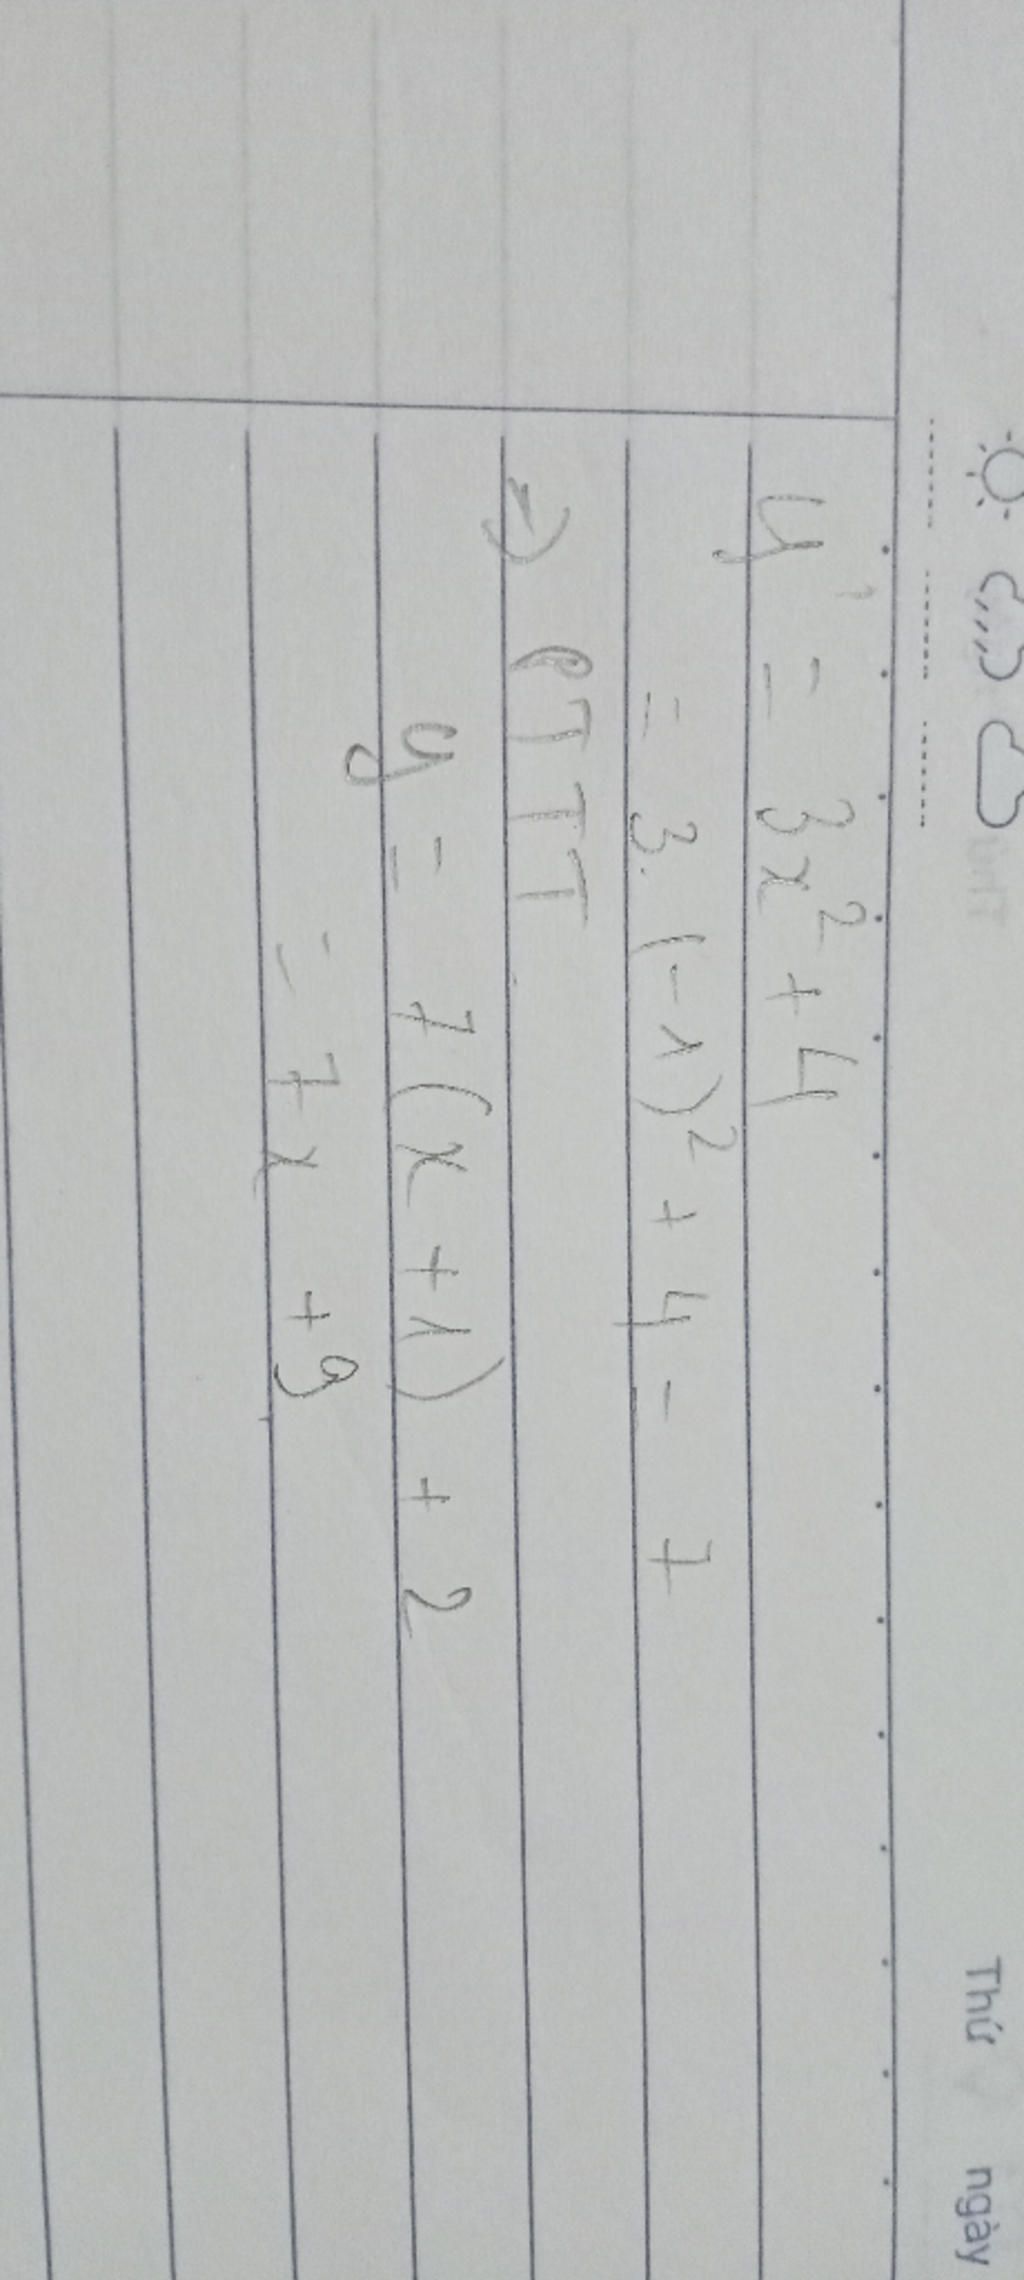 Thứ ngày
y' = 3x² + 4
= 3.(-1)² + 4 - 7
=> PTTT
y = 7(x + 1) + 2
= 7x + 9